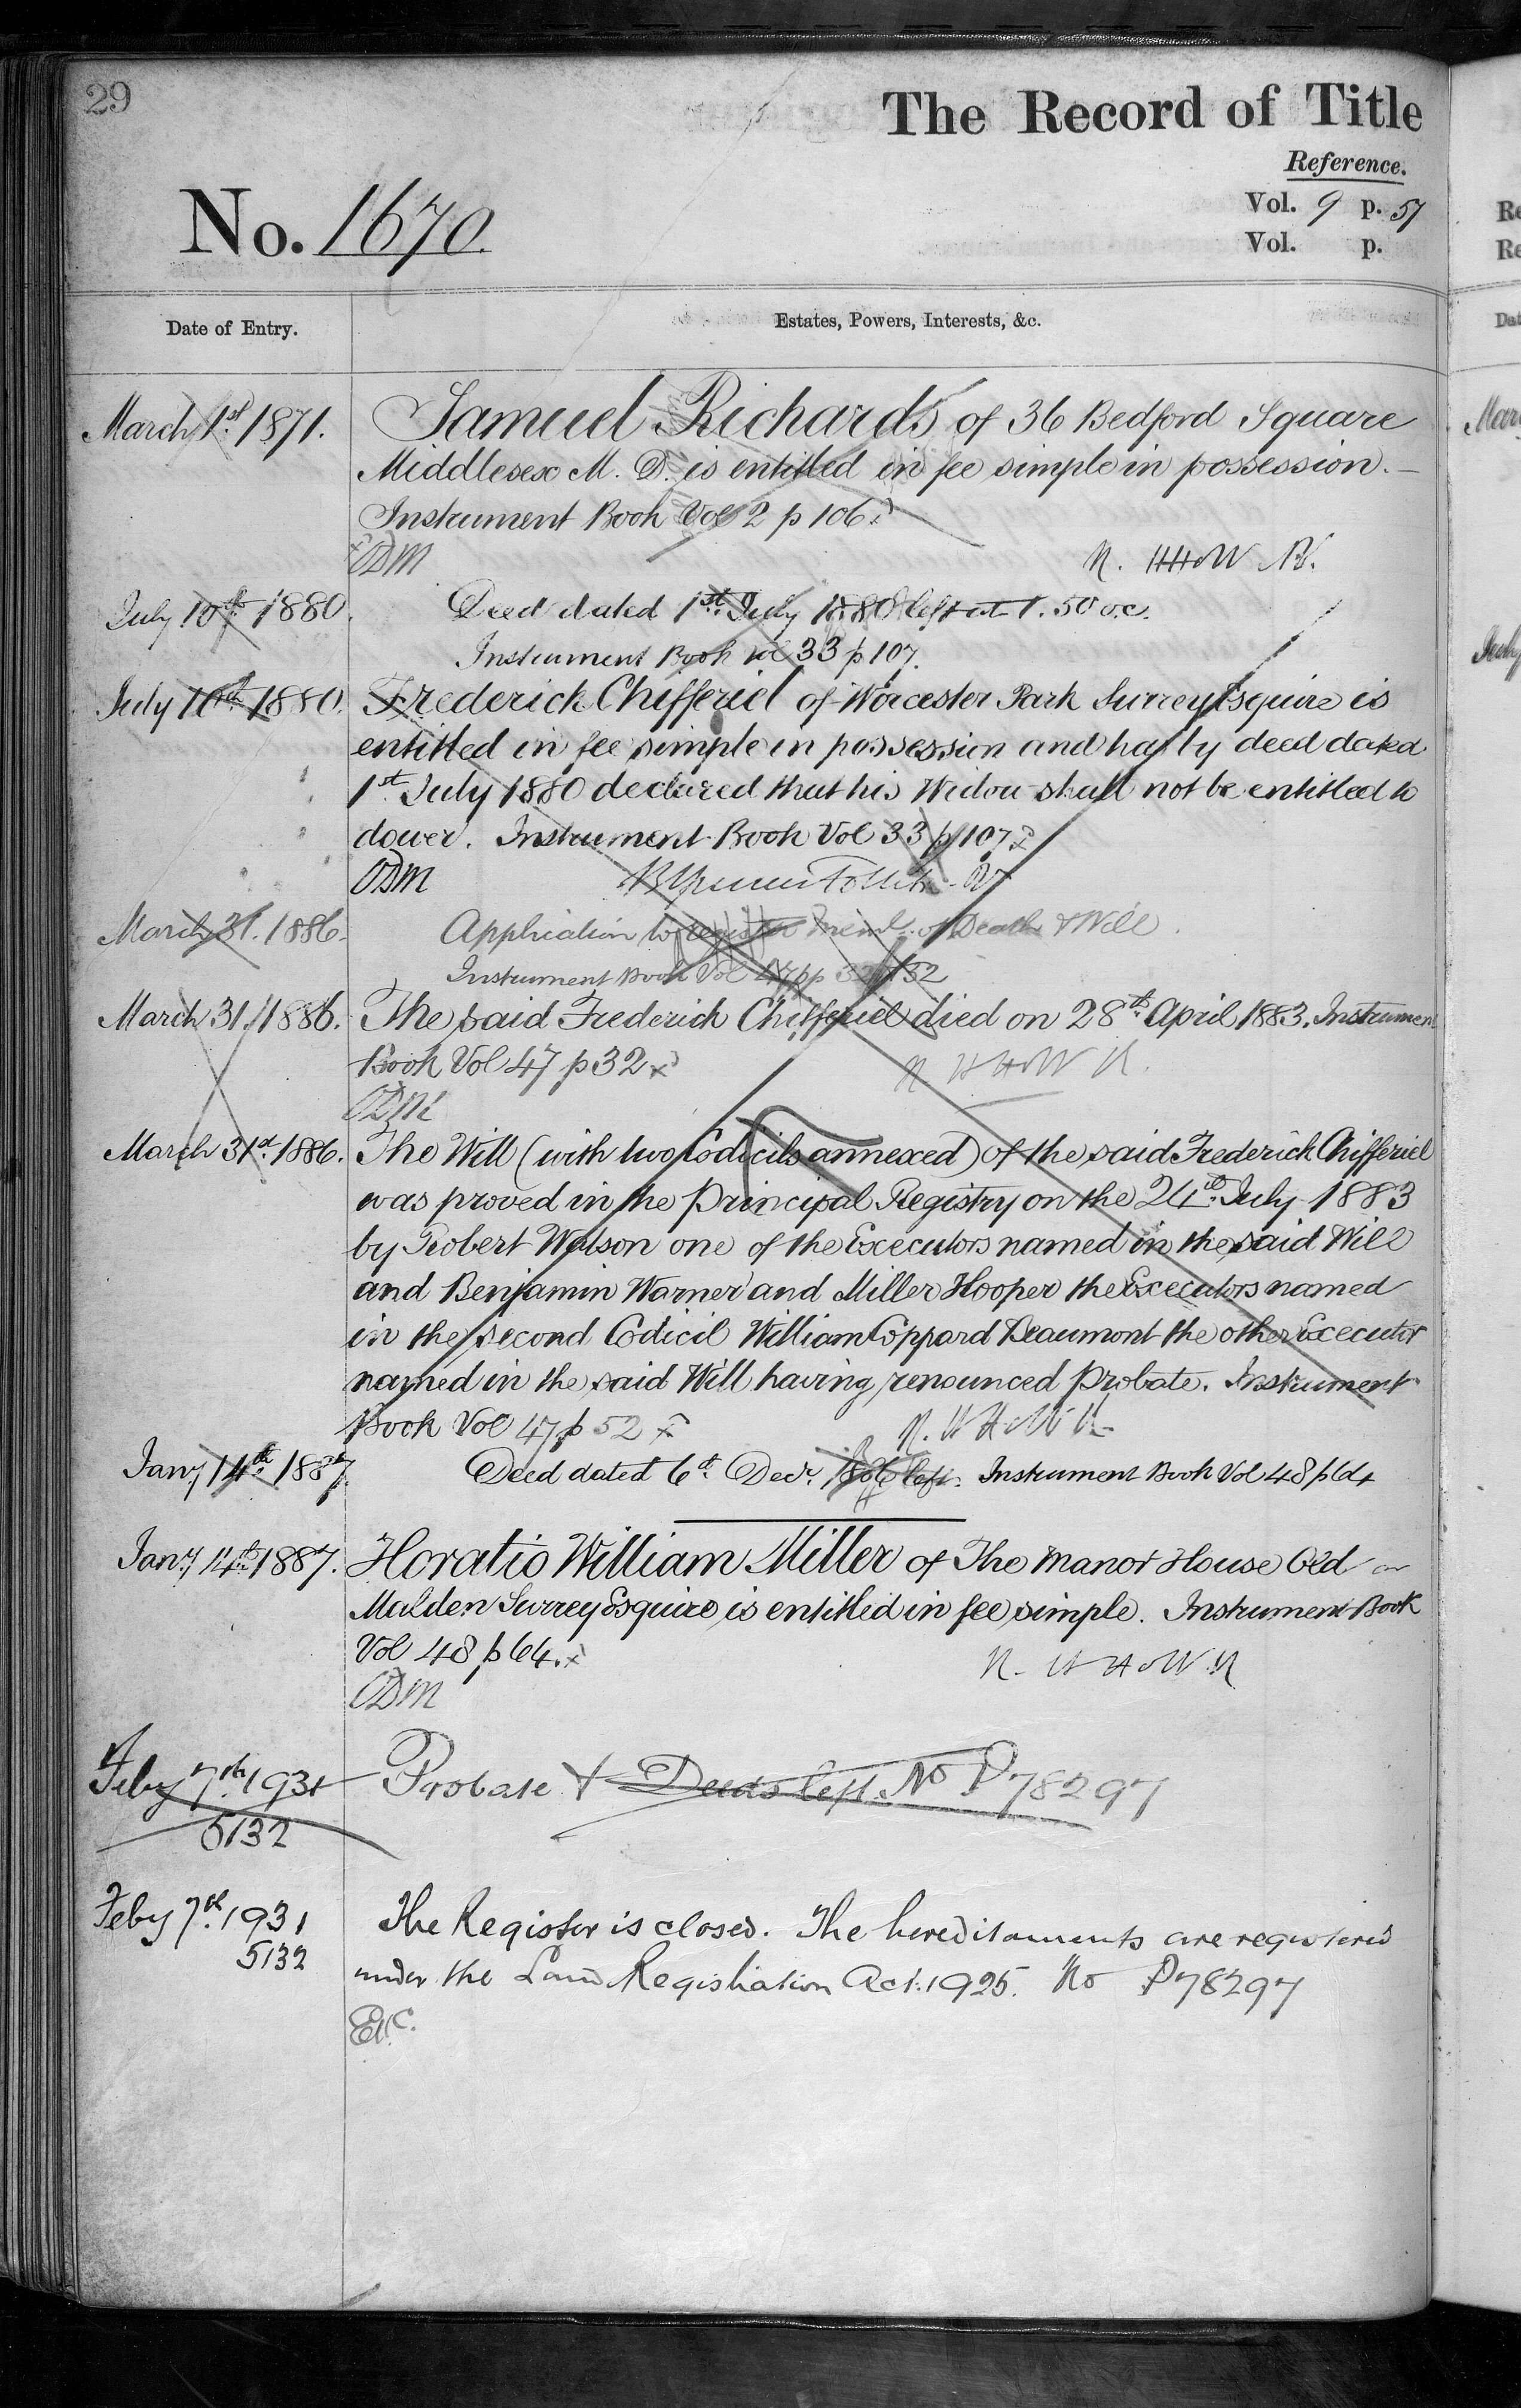 29
The Record of Title
Reference.
No. 1670.
Vol. 9 p. 57
Vol. p.
Date of Entry.
Estates, Powers, Interests, &c.
March 1st 1871. Samuel Richards of 36 Bedford Square
Middlesex M. D. is entitled in fee simple in possession.—
Instrument Book Vol 2 p 106
ODM
July 10th 1880. Deed dated 1st July 1880 left at 1.50
Instrument Book vol 33 p 107.
July 10th 1880. Frederick Chifferiel of Worcester Park Surrey Esquire is
entitled in fee simple in possession and has by deed dated
1st July 1880 declared that his Widow shall not be entitled to
dower. Instrument Book Vol 33 p 107
ODM
March 31. 1886. Application to register of Death & Will.
Instrument Book Vol 47 pp 32 & 52
March 31. 1886. The said Frederick Chifferiel died on 28th April 1883. Instrument
Book Vol 47 p 32
ODM
March 31st 1886. The Will (with two Codicils annexed) of the said Frederick Chifferiel
was proved in the Principal Registry on the July 1883
by Robert Watson one of the Executors named in the said Will
and Benjamin Warner and Miller Hooper the Executors named
in the second Codicil William Coppard Beaumont the other Executor
named in the said Will having renounced Probate. Instrument
Book Vol 47 p 52
Jany 14th 1887. Deed dated 6th Decr. left. Instrument Book Vol 48 p 64
Jany 14th 1887. Horatio William Miller of The Manor House Old
Malden Surrey Esquire is entitled in fee simple. Instrument Book
Vol 48 p 64.
ODM
Feby 7th 1931 Probate & Deeds left. No P78297
5132
Feby 7th 1931 The Register is closed. The hereditaments are registered
5132 under the Land Registration Act. 1925. No P78297